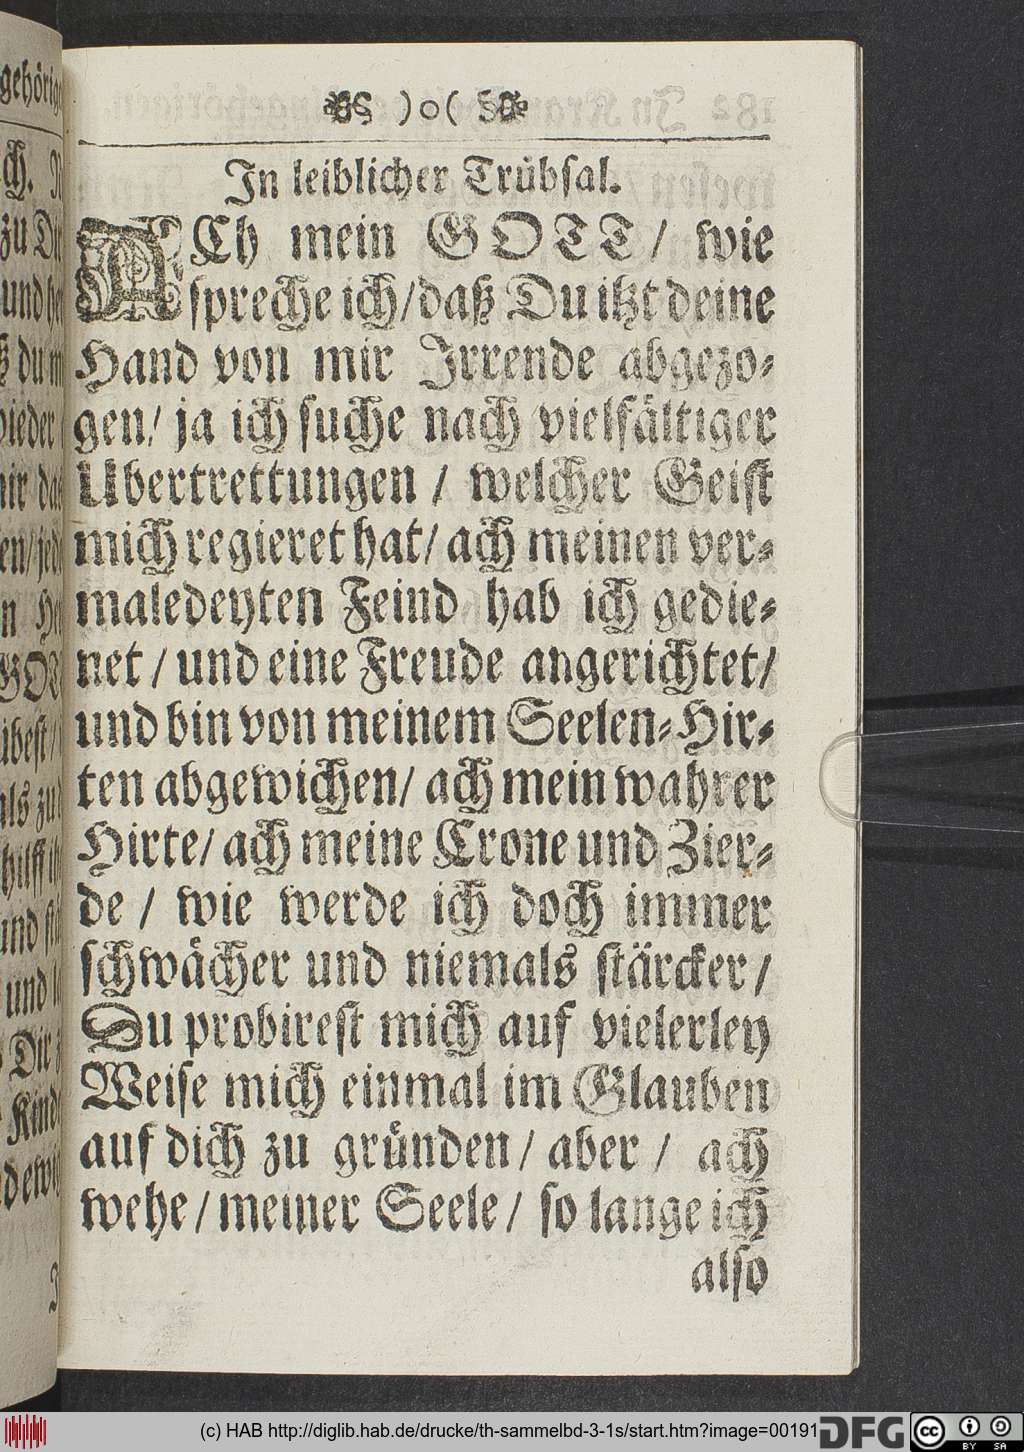 )o(
In leiblicher Trübsal.
ACh mein GOTT / wie
spreche ich / daß Du itzt deine
Hand von mir Irrende abgezo-
gen / ja ich suche nach vielfältiger
Ubertrettungen / welcher Geist
mich regieret hat / ach meinen ver-
maledeyten Feind hab ich gedie-
net / und eine Freude angerichtet /
und bin von meinem Seelen-Hir-
ten abgewichen / ach mein wahrer
Hirte / ach meine Crone und Zier-
de / wie werde ich doch immer
schwächer und niemals stärcker /
Du probirest mich auf vielerley
Weise mich einmal im Glauben
auf dich zu gründen / aber / ach
wehe / meiner Seele / so lange ich
also
(c) HAB http://diglib.hab.de/drucke/th-sammelbd-3-1s/start.htm?image=00191
DFG
cc
BY SA